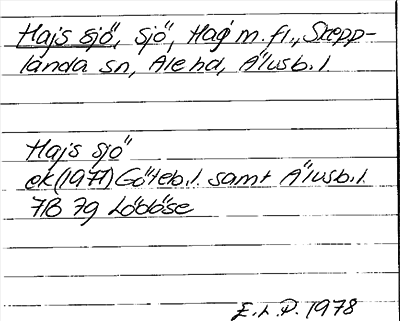 Hajs sjö, sjö, Hag m. fl., Skepp-
landa sn, Ale hd, Älvsb. l.
Hajs sjö
ek (1977) Göteb. l. samt Älvsb. l.
7B 7g Lödöse
E.L.P. 1978